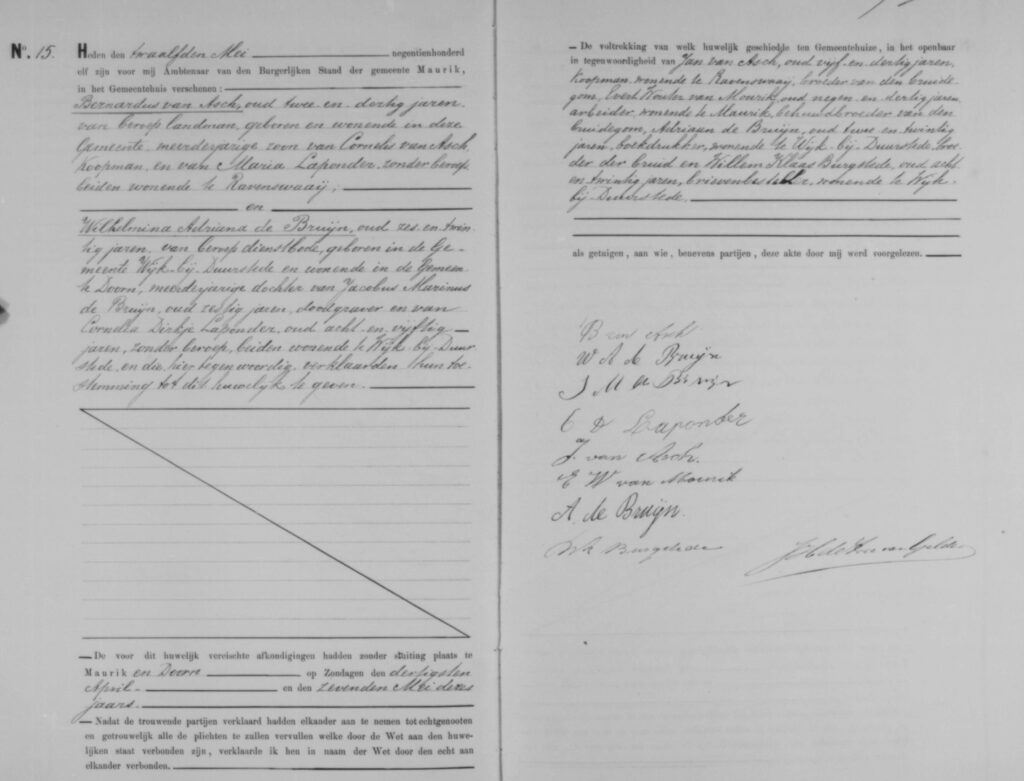 No. 15. Heden den twaalfden Mei negentienhonderd
elf zijn voor mij Ambtenaar van den Burgerlijken Stand der gemeente Maurik,
in het Gemeentehuis verschenen:
Bernardus van Asch, oud twee en dertig jaren
van beroep landman, geboren en wonende in deze
Gemeente meerderjarige zoon van Cornelis van Asch,
koopman, en van Maria Laponder, zonder beroep
beiden wonende te Ravenswaaij,
en
Wilhelmina Adriana de Bruijn, oud zes en twin
tig jaren, van beroep dienstbode, geboren in de Ge-
meente Wijk-bij-Duurstede en wonende in de Gemeen
te Doorn, meerderjarige dochter van Jacobus Marinus
de Bruijn, oud zestig jaren, doodgraver en van
Cornelia Dirkje Laponder, oud acht en vijftig
jaren, zonder beroep, beiden wonende te Wijk-bij-Duur
stede, en die, hier tegenwoordig verklaarden hun toe-
stemming tot dit huwelijk te geven.
De voor dit huwelijk vereischte afkondigingen hadden zonder stuiting plaats te
Maurik en Doorn op Zondagen den dertigsten
April en den zevenden Mei dezes
jaars.
Nadat de trouwende partijen verklaard hadden elkander aan te nemen tot echtgenooten
en getrouwelijk alle de plichten te zullen vervullen welke door de Wet aan den huwe-
lijken staat verbonden zijn, verklaarde ik hen in naam der Wet door den echt aan
elkander verbonden.
De voltrekking van welk huwelijk geschiedde ten Gemeentehuize, in het openbaar
in tegenwoordigheid van Jan van Asch, oud vijf en dertig jaren,
koopman, wonende te Ravenswaaij, broeder van den bruide
gom, Evert Wouter van Mourik, oud negen en dertig jaren
arbeider, wonende te Maurik, behuwdbroeder van den
bruidegom, Adriaan de Bruijn, oud twee en twintig
jaren, boekdrukker, wonende te Wijk-bij-Duurstede, broe
der der bruid en Willem Klaas Burgstede, oud acht
en twintig jaren, brievenbesteller, wonende te Wijk-
bij-Duurstede,
als getuigen, aan wie, benevens partijen, deze akte door mij werd voorgelezen.
B van Asch
W A de Bruijn
J M de Bruijn
C D Laponder
J. van Asch.
E W van Mourik
A. de Bruijn.
WK Burgstede